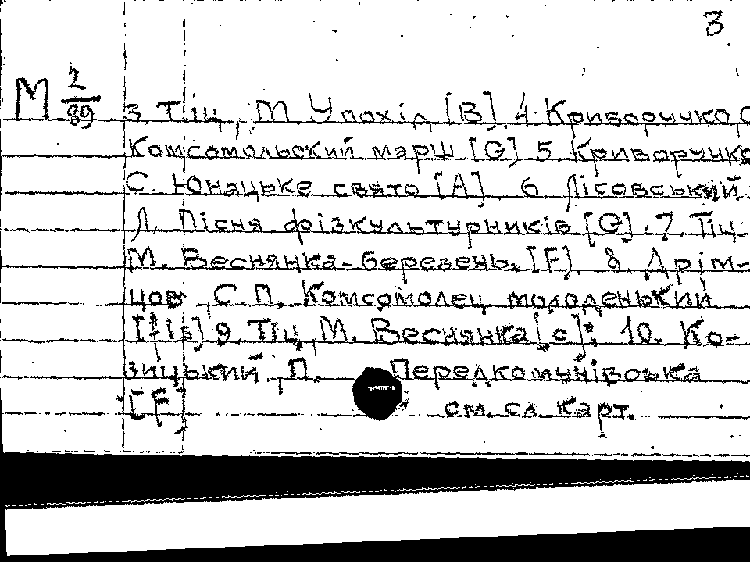 3
М 2/89 3. Тіц, М. У похід [B]. 4. Криворучко, С.
Комсомольский марш [G] 5. Криворучко
С. Юнацьке свято [A]. 6. Лісовський
Л. Пісня фізкультурників [G]. 7. Тіц
М. Веснянка-березень. [F]. 8. Дрім-
цов С. П. Комсомолец молоденький
[fis] 9. Тіц, М. Веснянка [c]; 10. Ко-
зицький, П. Передкомунівська
[F] см. сл. карт.